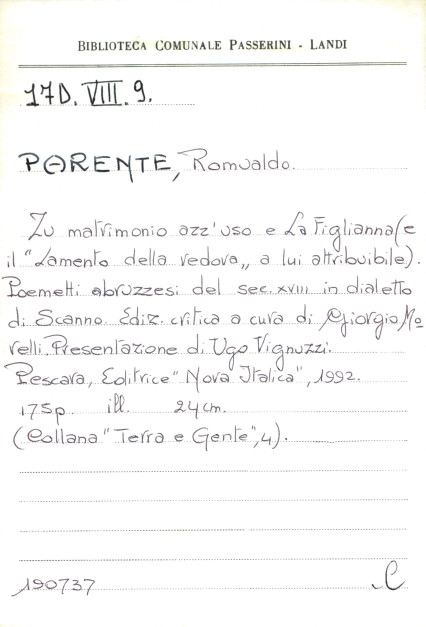 BIBLIOTECA COMUNALE PASSERINI - LANDI
17D. VIII. 9.
PARENTE, Romualdo.
Zu matrimonio azz'uso e La Figlianna (e
il "Lamento della vedova„ a lui attribuibile).
Poemetti abruzzesi del sec. XVIII in dialetto
di Scanno. Ediz. critica a cura di Giorgio Mo
relli. Presentazione di Ugo Vignuzzi.
Pescara, Editrice "Nova Italica", 1992.
175p. ill. 24cm.
(Collana "Terra e Gente", 4).
190737 C